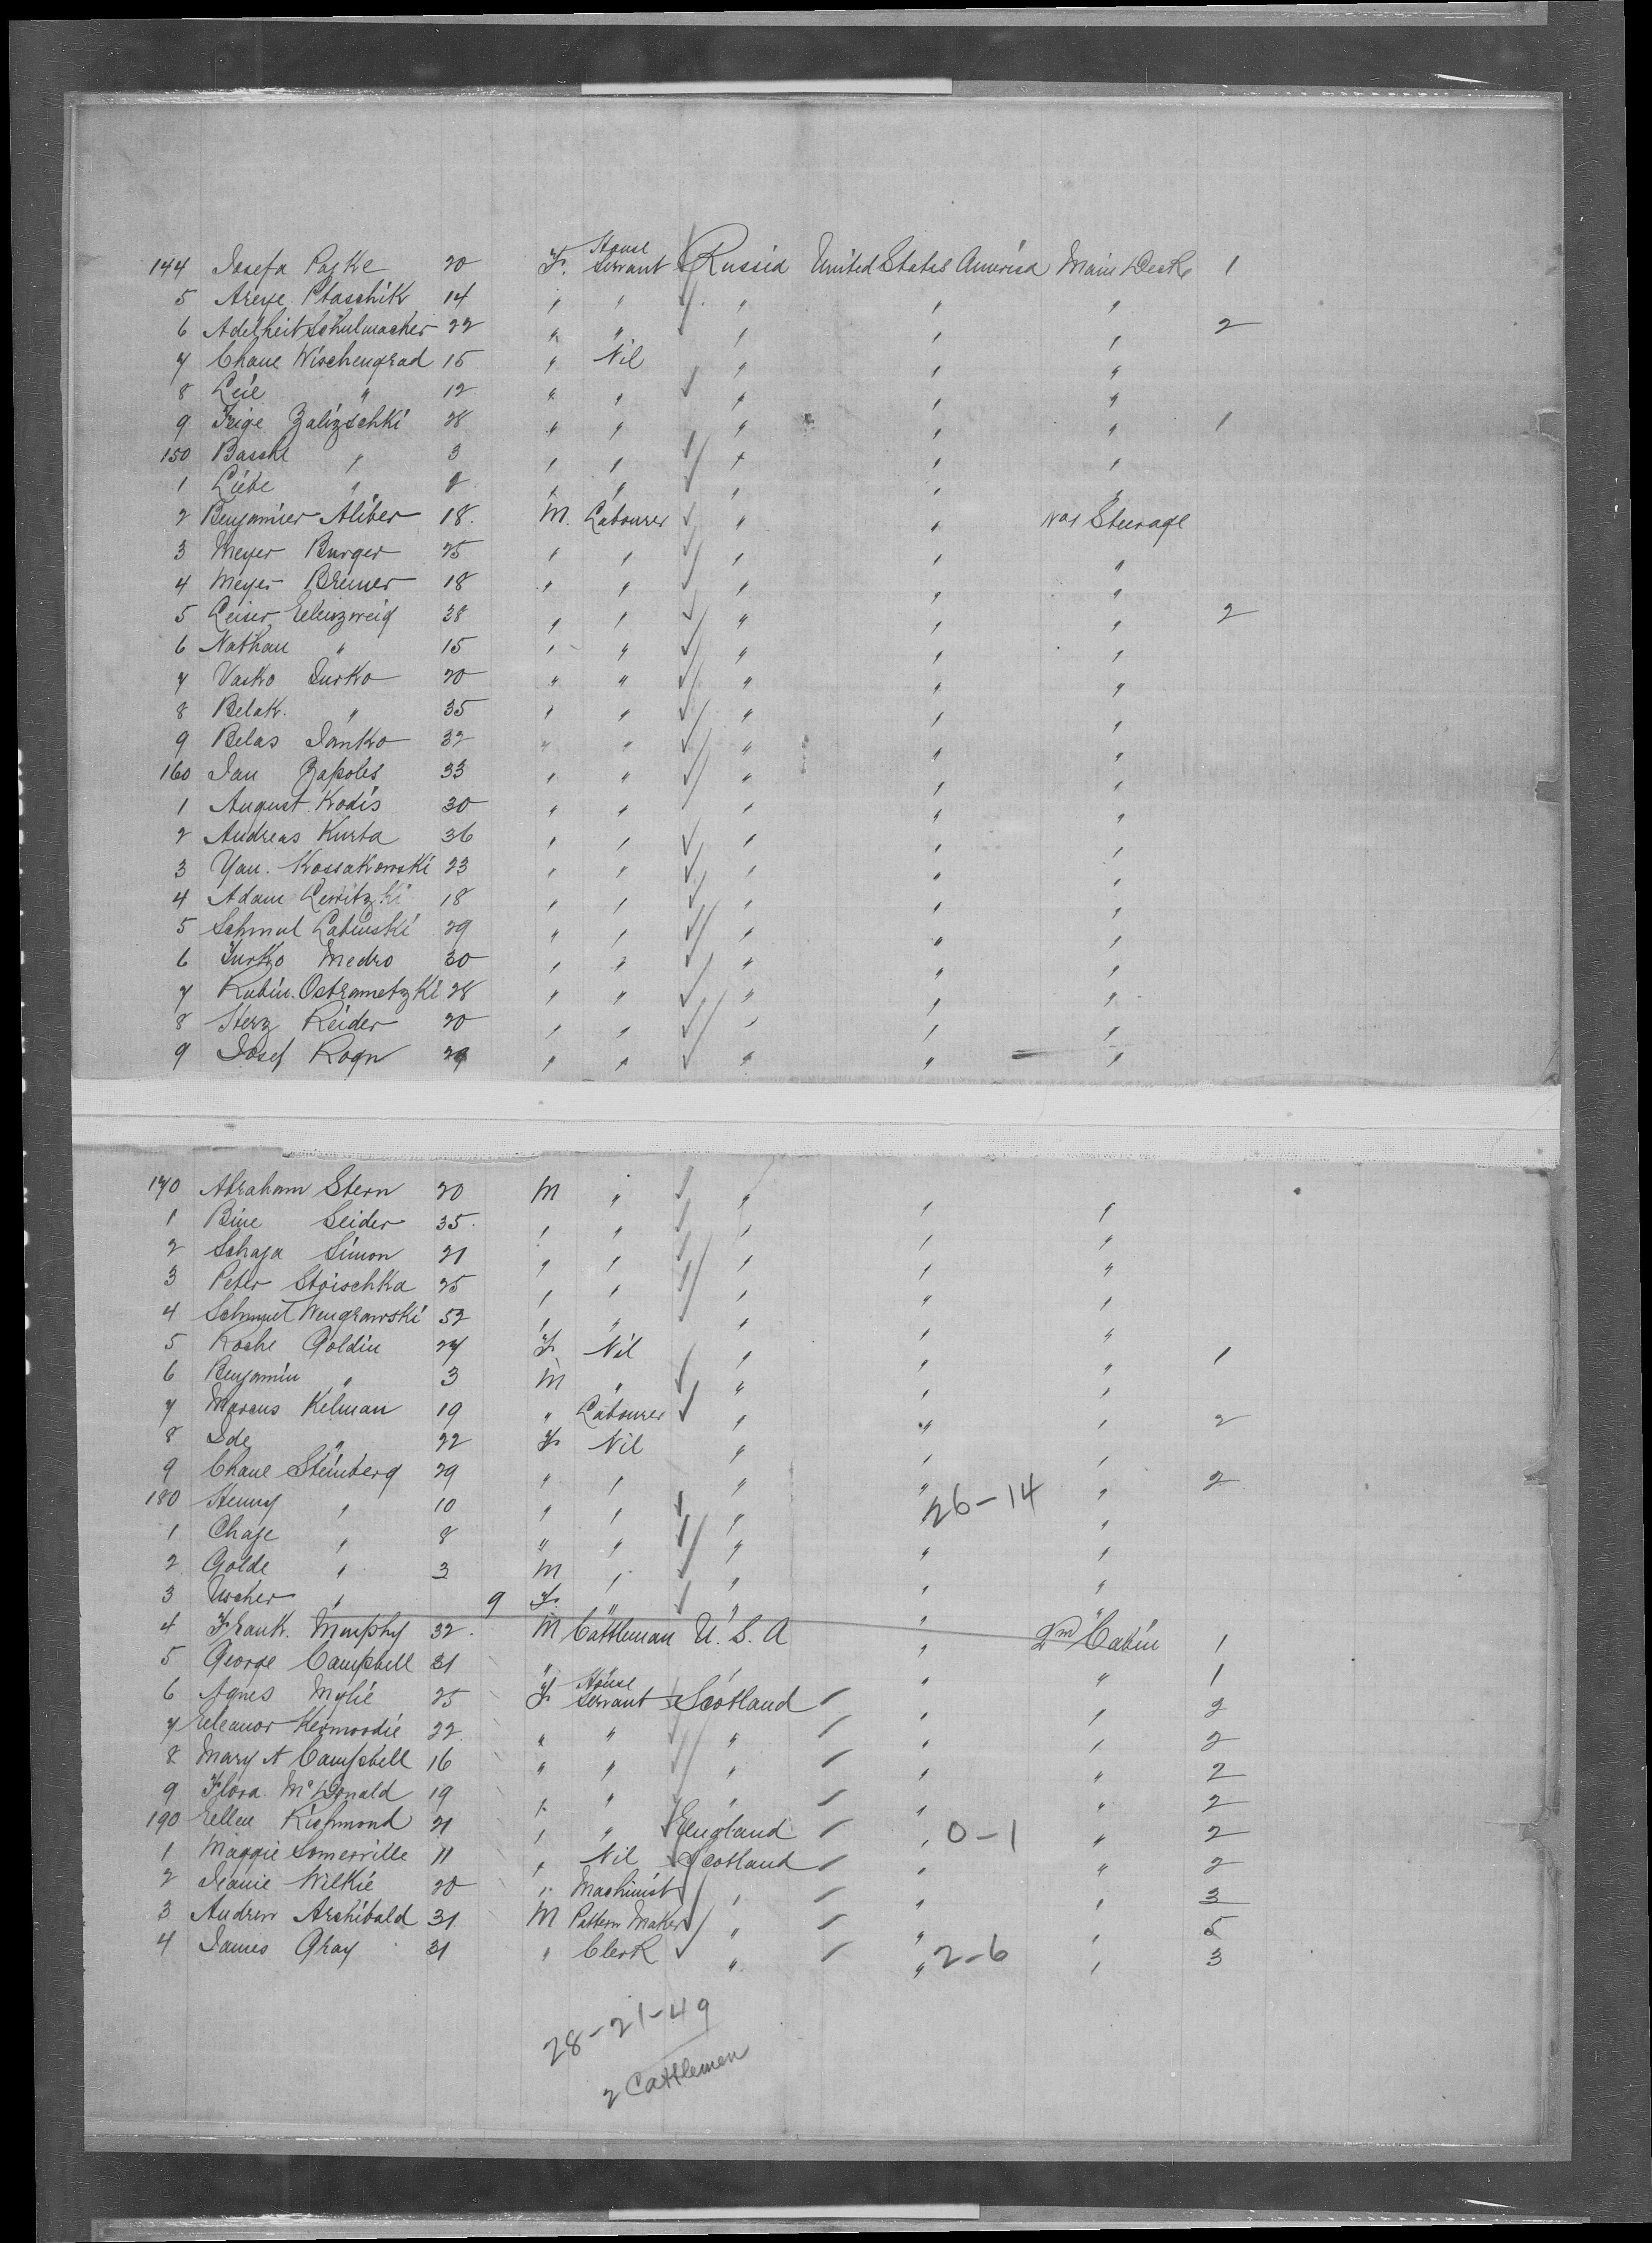 144 Josefa Paske 20 F. House Servant Russia United States America Main Deck 1
5 Areye Ptaschik 14 " " " " "
6 Adelheit Schulmacher 22 " " " " " 2
7 Chane Wischengrad 15 " Nil " " "
8 Leie " 12 " " " " "
9 Feige Zalizschki 28 " " " " " 1
150 Basche " 3 " " " " "
1 Liebe " " " " " "
2 Benjamier Aliber 18. M. Labourer " " No 1 Steerage
3 Meyer Burger 25 " " " " "
4 Meyer Bremer 18 " " " " "
5 Leiser Eelenzweig 38 " " " " " 2
6 Nathan " 15 " " " " "
7 Vasko Jurko 20 " " " " "
8 Belak. " 35 " " " " "
9 Belas Janko 32 " " " " "
160 Jan Zapoles 33 " " " " "
1 August Kodis 30 " " " " "
2 Andreas Kurta 36 " " " " "
3 Yan. Kossakowski 23 " " " " "
4 Adam Lewitzki 18 " " " " "
5 Schmul Labinski 29 " " " " "
6 Jurko Medro 30 " " " " "
7 Rubin Ostrametzki 28 " " " " "
8 Herz Reider 20 " " " " "
9 Josef Rogn 29 " " " " "
170 Abraham Stern 20 M " " " "
1 Bine Seider 35. " " " " "
2 Schaja Simon 21 " " " " "
3 Peter Stoischka 25 " " " " "
4 Schmul Wengrowski 52 " " " " "
5 Roche Goldin 27 F. Nil " " " 1
6 Benjamin " 3 M " " " "
7 Marcus Kelman 19 " Labourer " " " 2
8 Ide " 22 F Nil " " "
9 Chane Steinberg 29 " " " " " 2
180 Henny " 10 " " " " 26-14 "
1 Chaje " 8 " " " " "
2 Golde " 3 M " " " "
3 Uscher " 9 F. " " " "
4 Frank. Murphy 32. M Cattleman U.S.A " 2nd Cabin 1
5 George Campbell 31 " " " 1
6 Agnes Mylie 25 F House Servant Scotland " " 2
7 Eleanor Kermoodie 22 " " " " " 2
8 Mary A Campbell 16 " " " " " 2
9 Flora McDonald 19 " " " " " 2
190 Ellen Richmond 21 " " England " 0-1 " 2
1 Maggie Somerville 11 " Nil Scotland " " 2
2 Jeanie Wilkie 20 " Machinist " " " 3
3 Andrew Archibald 31 M Pattern Maker " " " 5
4 James Gray 31 " Clerk " " 2-6 " 3
28-21-49
2 Cattlemen